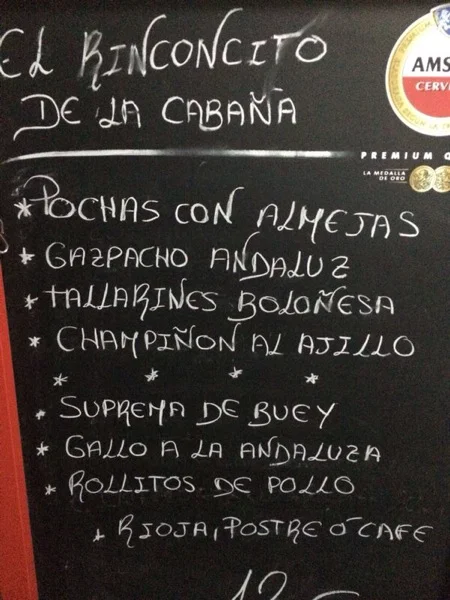 EL RINCONCITO
DE LA CABAÑA
AMS
CERV
PREMIUM
LA MEDALLA
DE ORO
* POCHAS CON ALMEJAS
* GAZPACHO ANDALUZ
* TALLARINES BOLOÑESA
* CHAMPIÑON AL AJILLO
* * * *
* SUPREMA DE BUEY
* GALLO A LA ANDALUZA
* ROLLITOS DE POLLO
+ RIOJA, POSTRE Ó CAFE
12